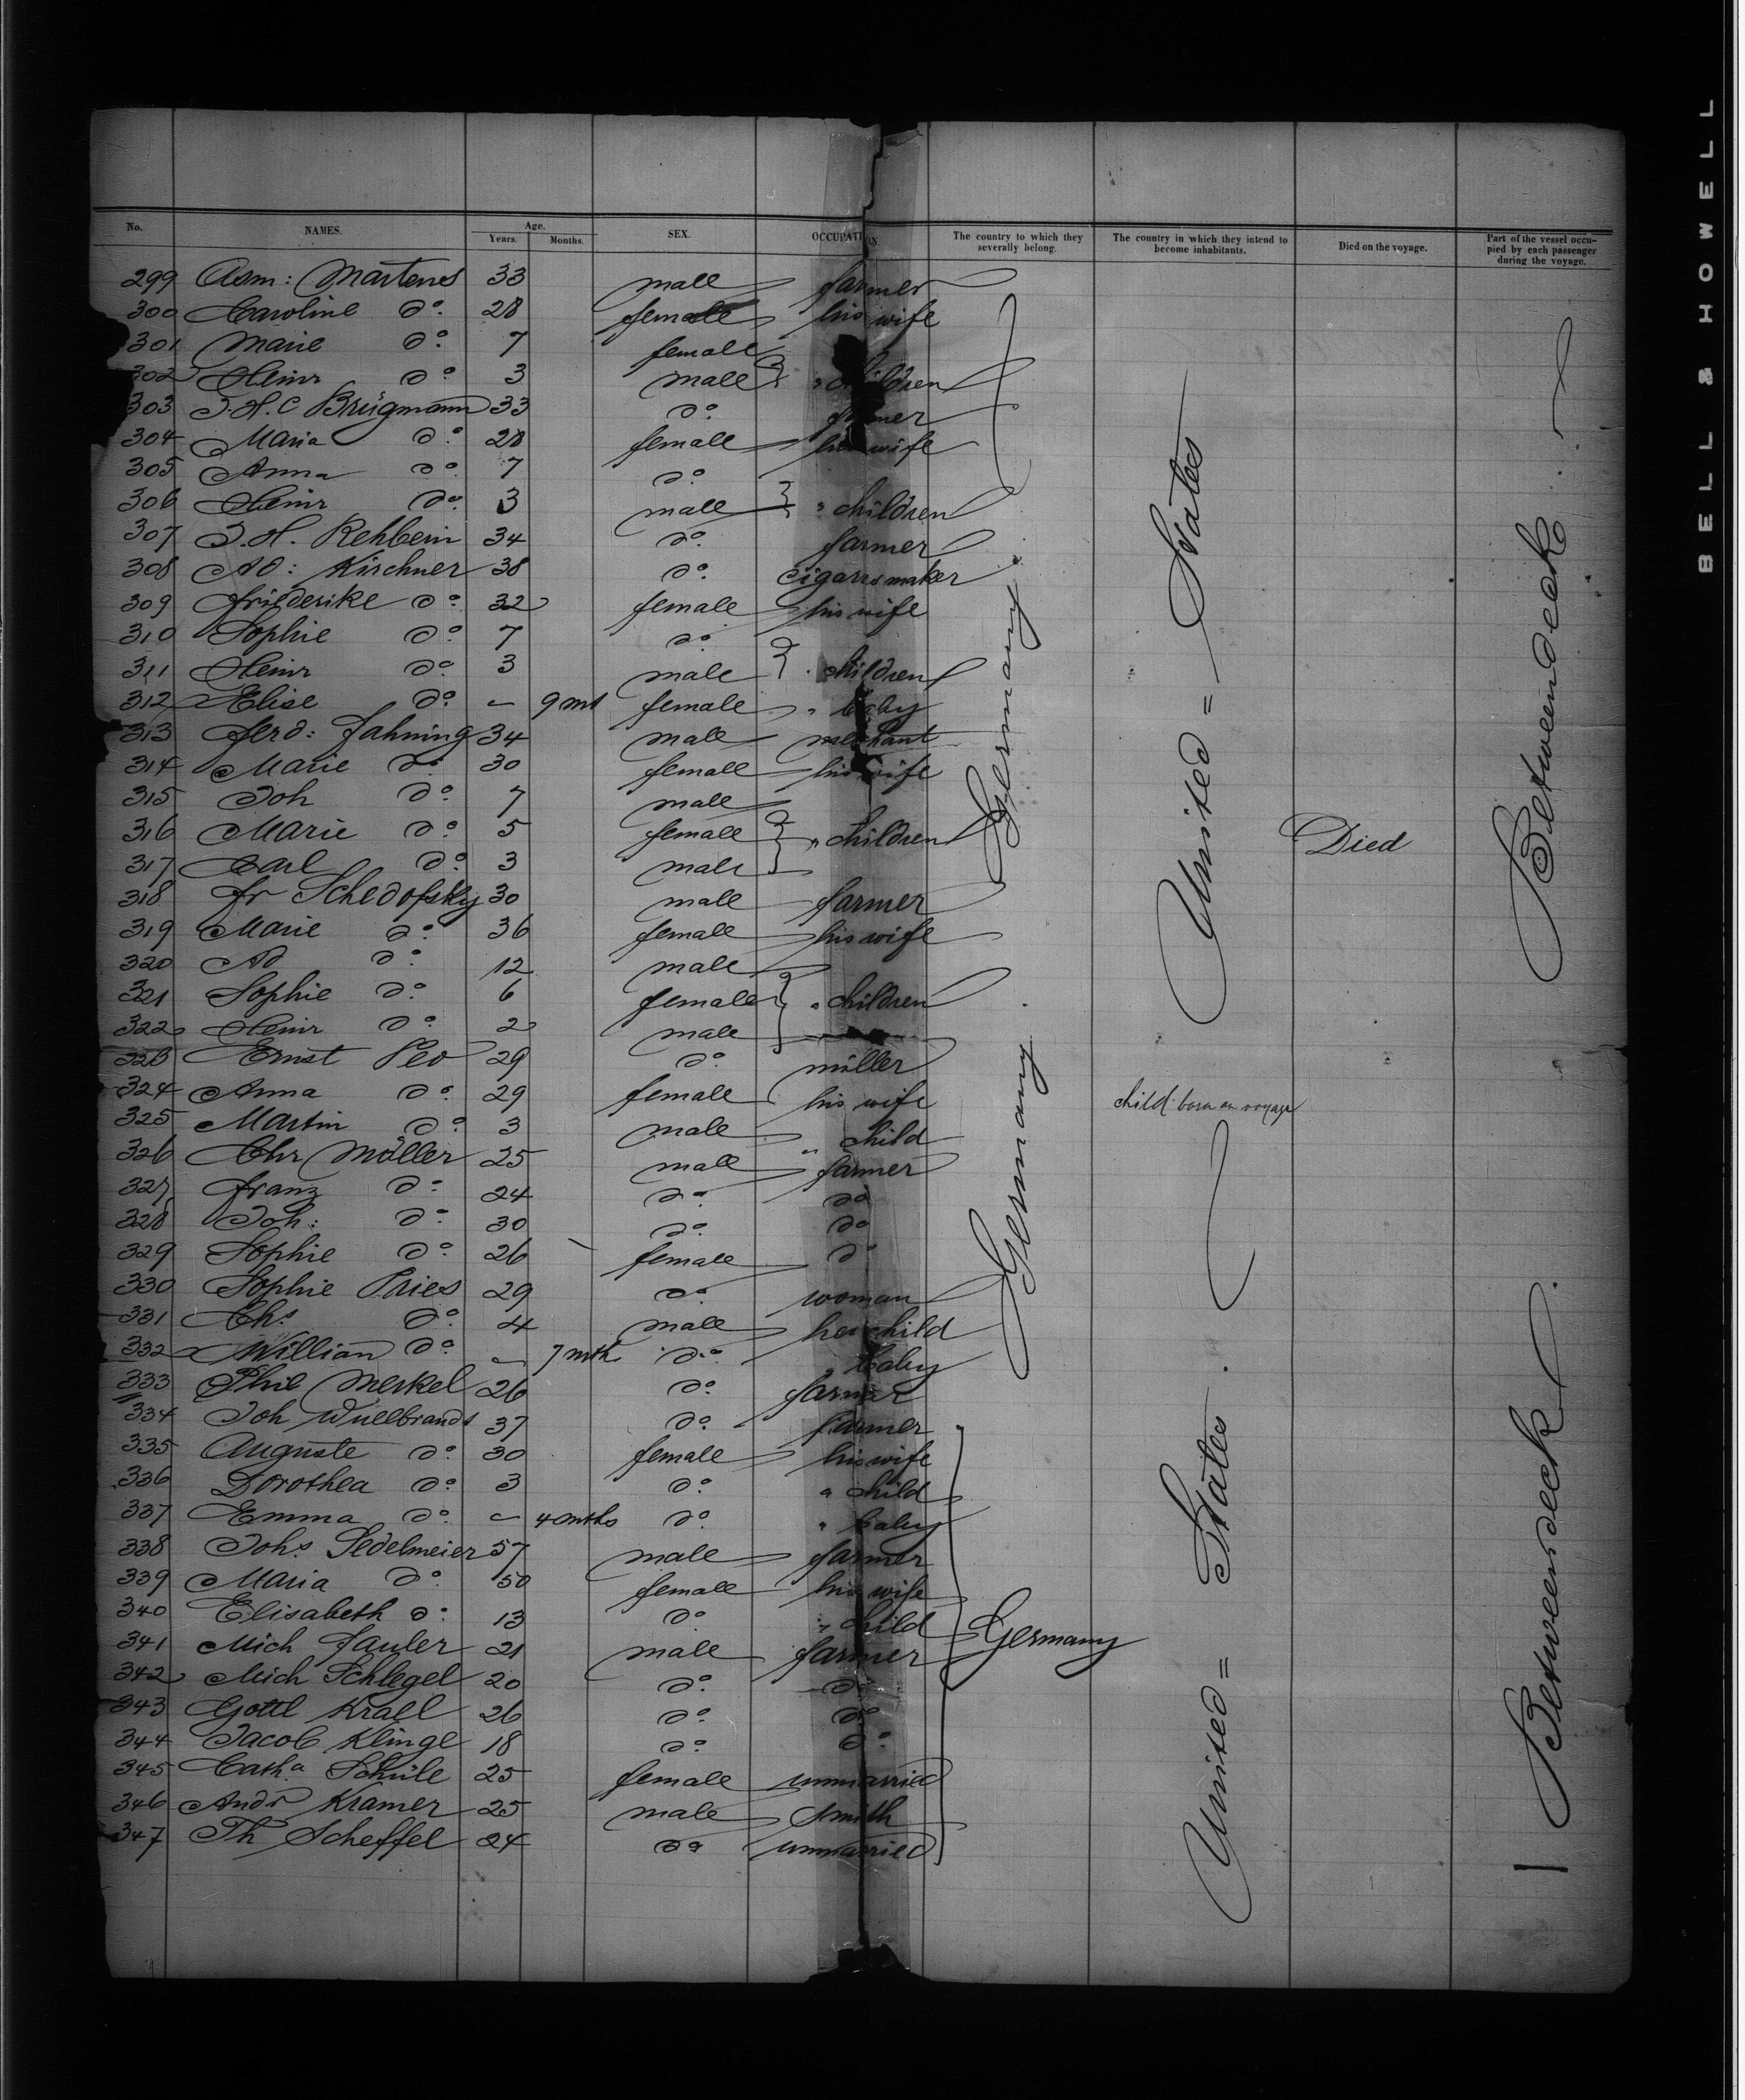 No. NAMES. Age. Years. Months. SEX. OCCUPATION. The country to which they severally belong. The country in which they intend to become inhabitants. Died on the voyage. Part of the vessel occupied by each passenger during the voyage.
299 Asm: Martens 33 male farmer
300 Caroline do. 28 female his wife
301 Marie do. 7 female
302 Heinr do. 3 male " children
303 J.H.C Brügmann 33 do. farmer
304 Maria do. 28 female his wife
305 Anna do. 7 do.
306 Heinr do. 3 male " children
307 J.H. Rehbein 34 do. farmer
308 Ad: Kirschner 38 do. cigarrs maker
309 Friederike do. 32 female his wife
310 Sophie do. 7 do.
311 Heinr do. 3 male " children
312 Elise do. – 9 mt female " baby
313 Ferd: Fahning 34 male merchant
314 Marie do. 30 female his wife
315 Joh do. 7 male
316 Marie do. 5 female " children Died
317 Carl do. 3 male
318 Fr Schedofsky 30 male farmer
319 Marie do. 36 female his wife
320 Ad do. 12 male
321 Sophie do. 6 female " children
322 Heinr do. 2 male
323 Ernst Peo 29 do. miller
324 Anna do. 29 female his wife child born on voyage
325 Martin do. 3 male " child
326 Chr Möller 25 male farmer
327 Franz do. 24 do. do
328 Joh: do. 30 do. do
329 Sophie do. 26 female do
330 Sophie Pries 29 do. woman
331 Chs. do. 4 male her child
332 Willian do. – 7 mth do. " baby
333 Phil Merkel 26 do. farmer
334 Joh Wüllbrands 37 do. farmer
335 Auguste do. 30 female his wife
336 Dorothea do. 3 do. " child
337 Emma do. – 4 mths do. " baby
338 Johs. Sedelmeier 57 male farmer
339 Maria do. 50 female his wife
340 Elisabeth do. 13 do. " child
341 Mich Fauler 21 male farmer Germany
342 Mich Schlegel 20 do. do.
343 Gottl Krall 26 do. do.
344 Jacob Klingl 18 do. do.
345 Cath.a Schüle 25 female unmarried
346 Andr Kramer 25 male smith
347 Th Scheffel 24 do unmarried
Germany.
Germany
United = States
United = States.
Betweendeck
Betweendeck
BELL & HOWELL